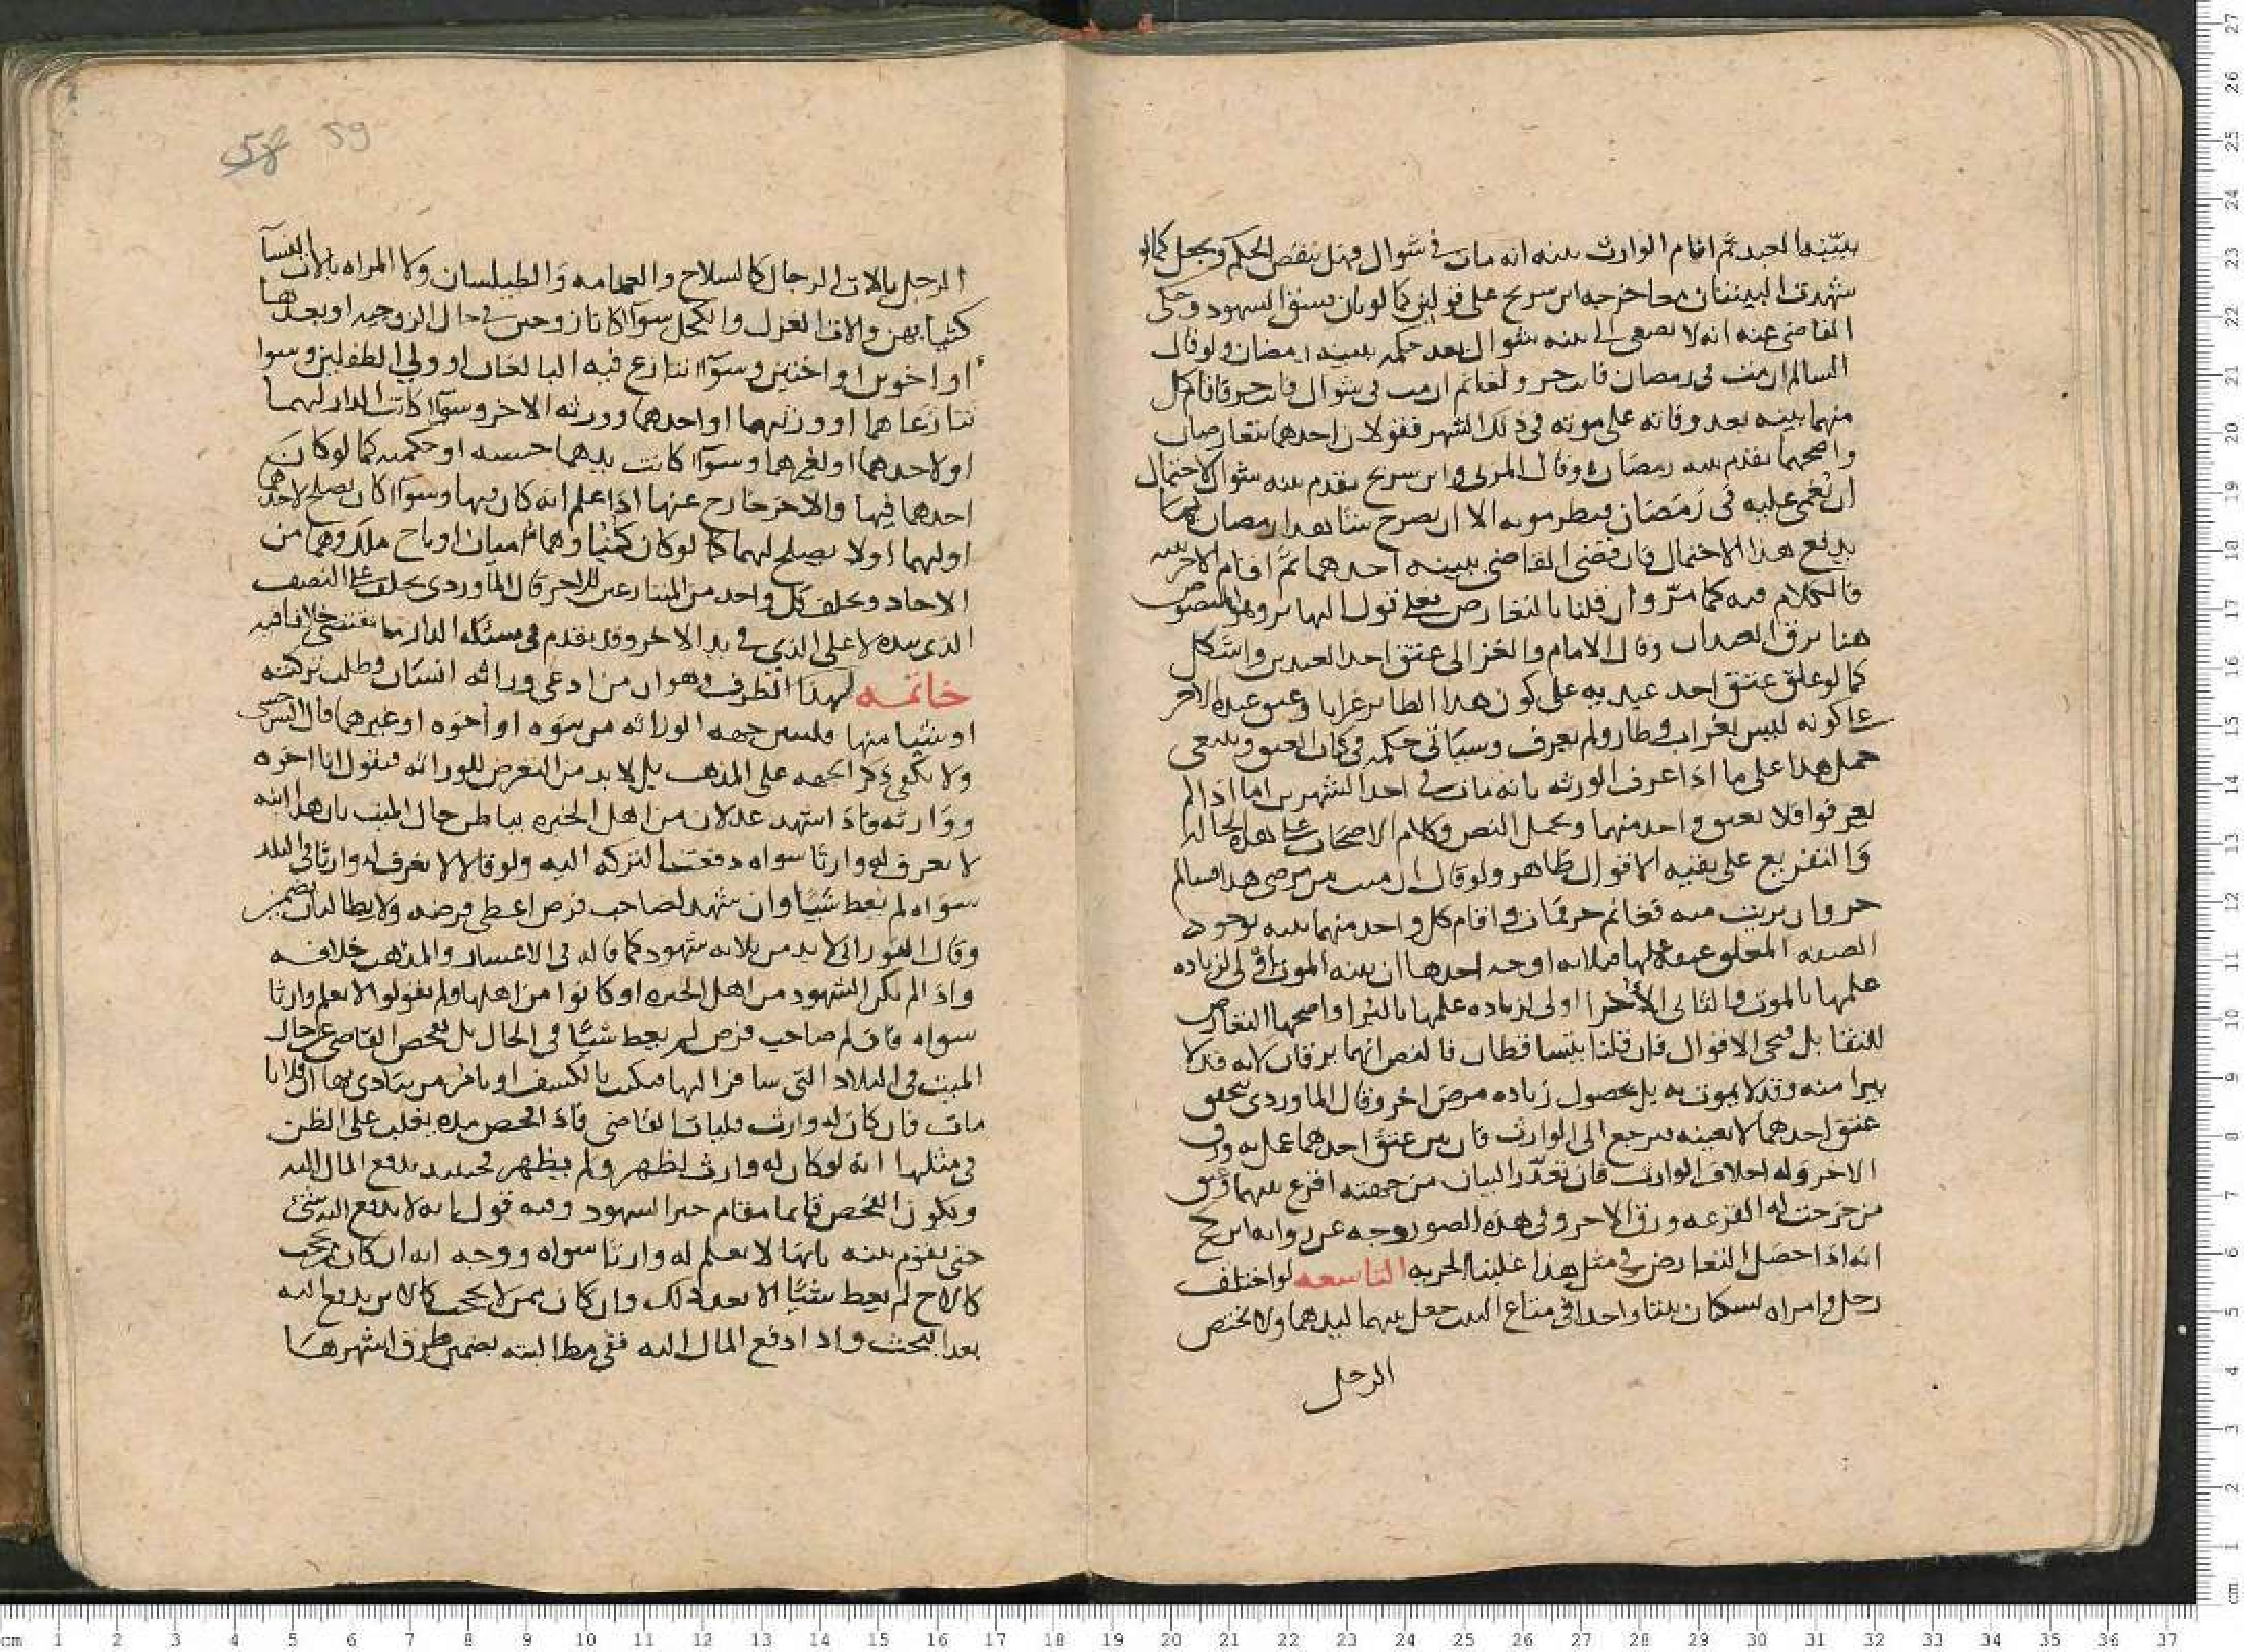 ببينه العبد ثم اقام الوارث بينه انه مات في شوال فهل ينقض الحكم ويجعل كما لو
شهدت البينتان معا خرجه ابن سريج على قولين كما لو بان فسق الشهود وحكى
القاضي عنه انه لا يصغى الى بينه شوال بعد حكمه ببينه رمضان ولو قال
لسالم ان مت في رمضان فانت حر ولغانم ان مت في شوال فانت حر فاقام كل
منهما بينه بعد وفاته على موته في ذلك الشهر فقولان احدهما يتعارضان
واصحهما تقدم بينه رمضان وقال المزني وابن سريج تقدم بينه شوال لاحتمال
ان يغمى عليه في رمضان فيظن موته الا ان يصرح بينتا بعد رمضان بما
يدفع هذا الاحتمال فان قضى القاضي ببينه احدهما ثم اقام الاخر بينه
فالكلام فيه كما مر وان قلنا بالتعارض فعلى قول التهاتر وهو المنصوص
هنا يرق العبدان وقال الامام والغزالي عتق احد العبدين واشكل
كما لو علق عتق احد عبديه على كون هذا الطاير غرابا وعتق عبده الاخر
على كونه ليس بغراب وطار ولم يعرف وسياتي حكمه في كتاب العتق وينبغي
حمل هذا على ما اذا عرف الورثه بانه مات في احد الشهرين اما اذا لم
يعرفوا فلا يعتق واحد منهما ويحمل النص وكلام الاصحاب على هذه الحاله
والتفريع على بقيه الاقوال ظاهر ولو قال ان مت من مرضي هذا فسالم
حر وان بريت منه فغانم حر فمات واقام كل واحد منهما بينه بوجود
الصفه المعلق عتقه عليها فثلاثه اوجه احدها ان بينه الموت اولى لزياده
علمها بالموت والثاني الاخرى اولى لزياده علمها بالبرا واصحها التعارض
للتقابل فتجي الاقوال فان قلنا يتساقطان فالنص انهما يرقان لانه قد لا
يبرا منه وقد لا يموت به بل بحصول زياده مرض اخر وقال الماوردي يتحقق
عتق احدهما لا بعينه فيرجع الى الوارث فان بين عتق احدهما عمل به ورق
الاخر وله احلاف الوارث فان تعذر البيان من جهته اقرع بينهما وعتق
من خرجت له القرعه ورق الاخر وفي هذه الصور وجه عن روايه ابن كج
انه اذا حصل التعارض في مثل هذا غلبنا الحريه التاسعه لو اختلف
رجل وامراه يسكنان بيتا واحدا في متاع البيت جعل بينهما ليدهما ولا يختص
الرجل
58 59
الرجل بالات الرجال كالسلاح والعمامه والطيلسان ولا المراه بالات النسا
كثيابهن والات الغزل والكحل سوا كانا زوجين في حال الزوجيه او بعدها
او اخوين او اختين وسوا تنازع فيه البالغان او ولي الطفلين وسوا
تنازعاهما او ورثتهما او احدهما وورثه الاخر وسوا كانت الدار لهما
او لاحدهما او لغيرهما وسوا كانت يدهما حسيه او حكميه كما لو كان
احدهما فيها والاخر خارج عنها اذا علم انه كان فيها وسوا كان يصلح لاحدهما
او لهما او لا يصلح لهما كما لو كان كتبا وهما اميان او تاج ملك وهما من
الاحاد ويحلف كل واحد من المتنازعين للاخر قال الماوردي يحلف على النصف
الذي بيده لا على الذي في يد الاخر وقد تقدم في مسئله الدار ما يقتضي خلافا فيه
خاتمه لهذا الطرف وهو ان من ادعى وراثه انسان وطلب تركته
او شيا منها فليبين جهه الوراثه من بنوه او اخوه او غيرهما قال السرخسي
ولا يكفي ذكر الجهه على المذهب بل لا بد من التعرض للوراثه فيقول انا اخوه
ووارثه فاذا شهد عدلان من اهل الخبره بباطن حال الميت بان هذا ابنه
لا نعرف له وارثا سواه دفعت التركه اليه ولو قالا لا نعرف له وارثا في البلد
سواه لم يعط شيا وان شهد لصاحب فرض اعطى فرضه ولا يطالبان بضمين
وقال الفوراني لا بد من ثلاثه شهود كما قاله في الاعسار والمذهب خلافه
واذا لم يكن الشهود من اهل الخبره او كانوا من اهلها ولم يقولوا لا نعلم وارثا
سواه فان لم صاحب فرض لم يعط شيا في الحال بل يفحص القاضي عن حال
الميت في البلاد التي سافر اليها فيكتب بالكشف او يامر من ينادي بها ان فلانا
مات فان كان له وارث فليات القاضي فاذا فحص مده يغلب على الظن
في مثلها انه لو كان له وارث لظهر ولم يظهر فحينيذ يدفع المال اليه
ويكون الفحص قايما مقام خبر الشهود وفيه قول انه لا يدفع اليه شي
حتى يقوم بينه بانها لا تعلم له وارثا سواه ووجه انه ان كان ممن يحجب
كالاخ لم يعط شيا الا بعد ذلك وان كان ممن لا يحجب كالابن يدفع اليه
بعد البحث واذا دفع المال اليه ففي مطالبته بضمين طرق اشهرها